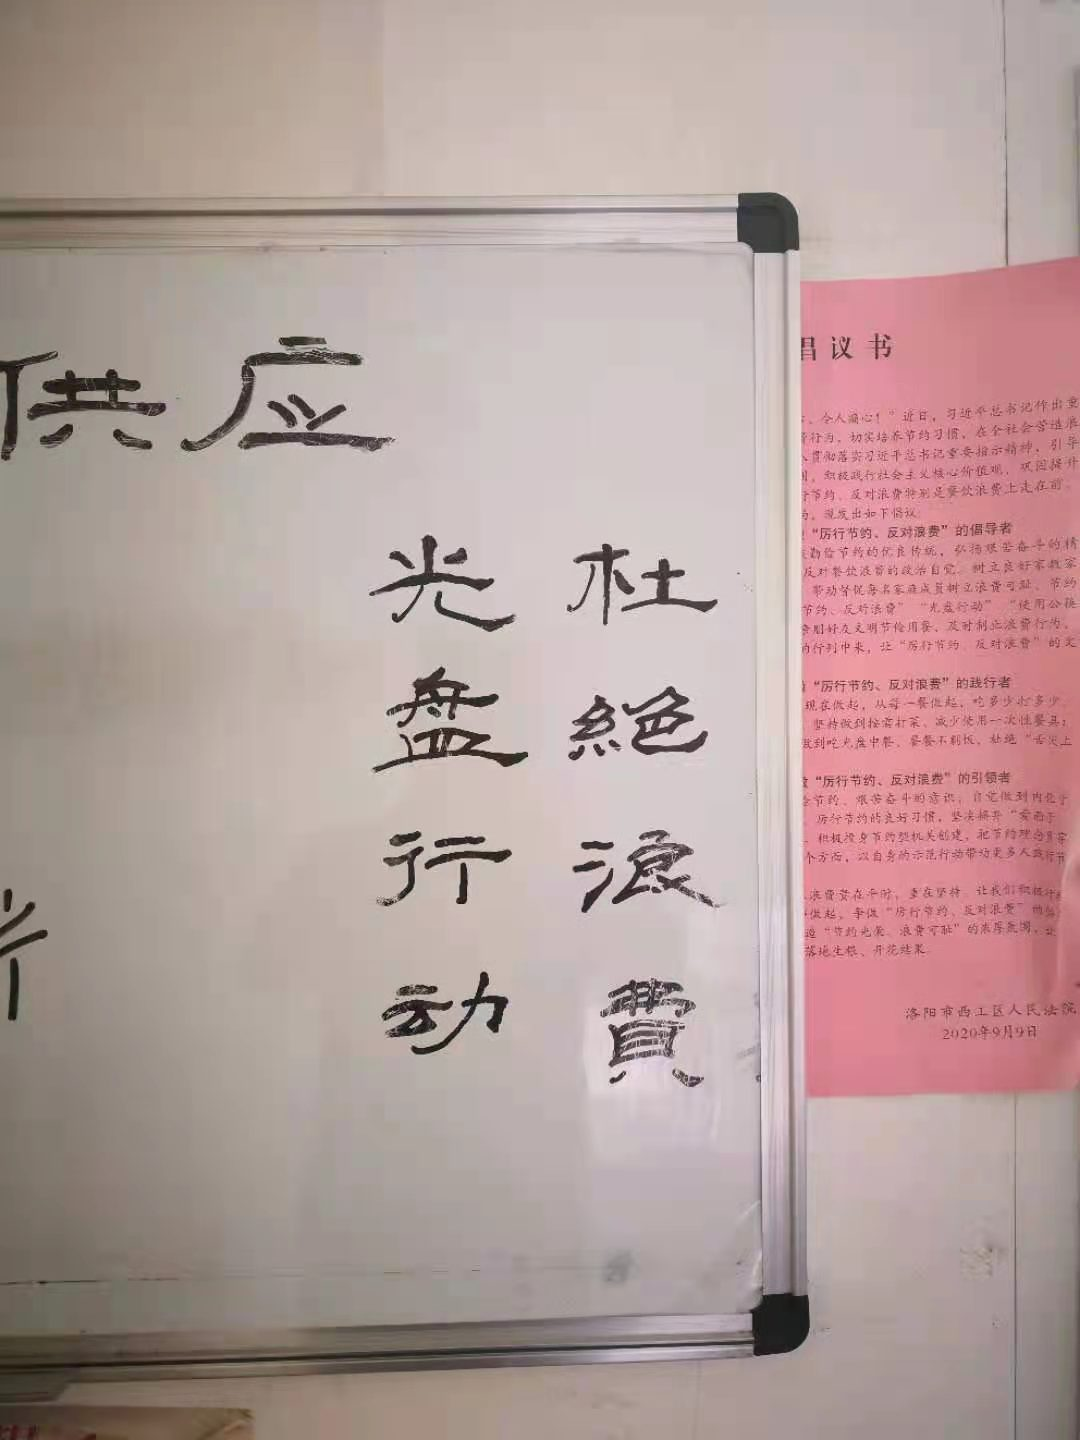 供应
杜絕浪費
光盘行动
倡议书
、令人痛心！”近日，习近平总书记作出重
行为，切实培养节约习惯，在全社会营造浪
贯彻落实习近平总书记重要指示精神，引导
，积极践行社会主义核心价值观，巩固提升
行节约、反对浪费特别是餐饮浪费上走在前、
，现发出如下倡议：
“厉行节约、反对浪费”的倡导者
勤俭节约的优良传统，弘扬艰苦奋斗的精
反对餐饮浪费的政治自觉，树立良好家教家
，带动督促每名家庭成员树立浪费可耻、节约
节约、反对浪费”“光盘行动”“使用公筷
亲朋好友文明节俭用餐，及时制止浪费行为，
的行列中来，让“厉行节约、反对浪费”的文
“厉行节约、反对浪费”的践行者
现在做起，从每一餐做起，吃多少
坚持做到按需打菜，减少使用一次性餐具；
做到吃光盘中餐、餐餐不剩饭，杜绝“舌尖上
“厉行节约、反对浪费”的引领者
节约、艰苦奋斗的意识，自觉做到内化于
厉行节约的良好习惯，坚决摒弃“爱面子
积极投身节约型机关创建，把节约理念贯穿
个方面，以自身的示范行动带动更多人践行节
浪费贵在平时，重在坚持。让我们积极行
做起，争做“厉行节约、反对浪费”的倡
“节约光荣、浪费可耻”的浓厚氛围，让
落地生根、开花结果。
洛阳市西工区人民法院
2020年9月9日